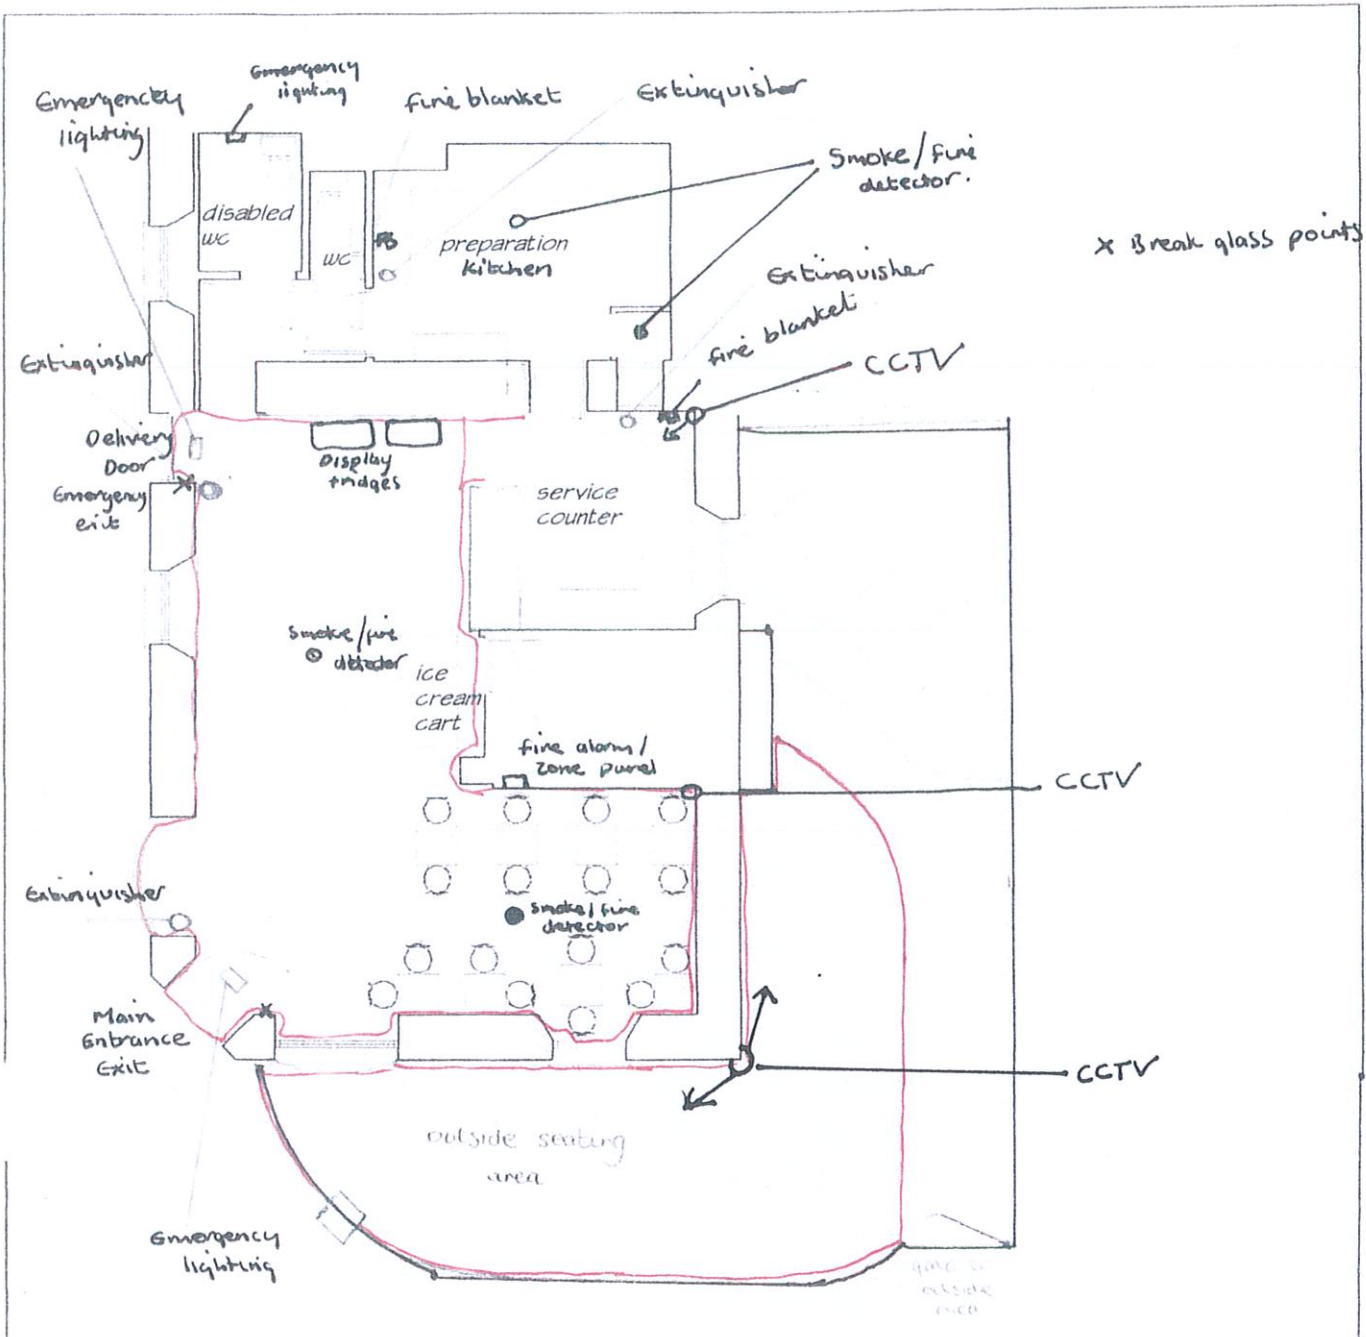 Emergency
lighting
Emergencey
lighting
fire blanket
Extinguisher
Smoke/fire
detector.
disabled
wc
wc
FB
preparation
kitchen
x Break glass points
Extinguisher
fire blanket
CCTV
Extinguisher
Delivery
Door
Emergency
exit
Display
fridges
service
counter
Smoke/fire
detector
ice
cream
cart
fire alarm/
zone panel
CCTV
Extinguisher
Smoke/fire
detector
Main
Entrance
Exit
CCTV
outside seating
area
Emergency
lighting
gate to
outside
area